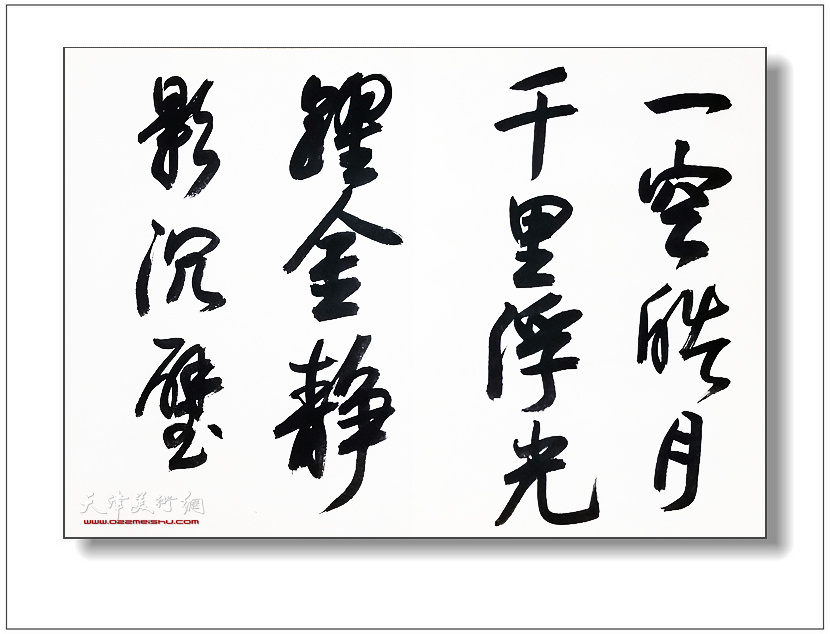 一空皓月
千里浮光
躍金静
影沉璧
天津美術網
www.022meishu.com